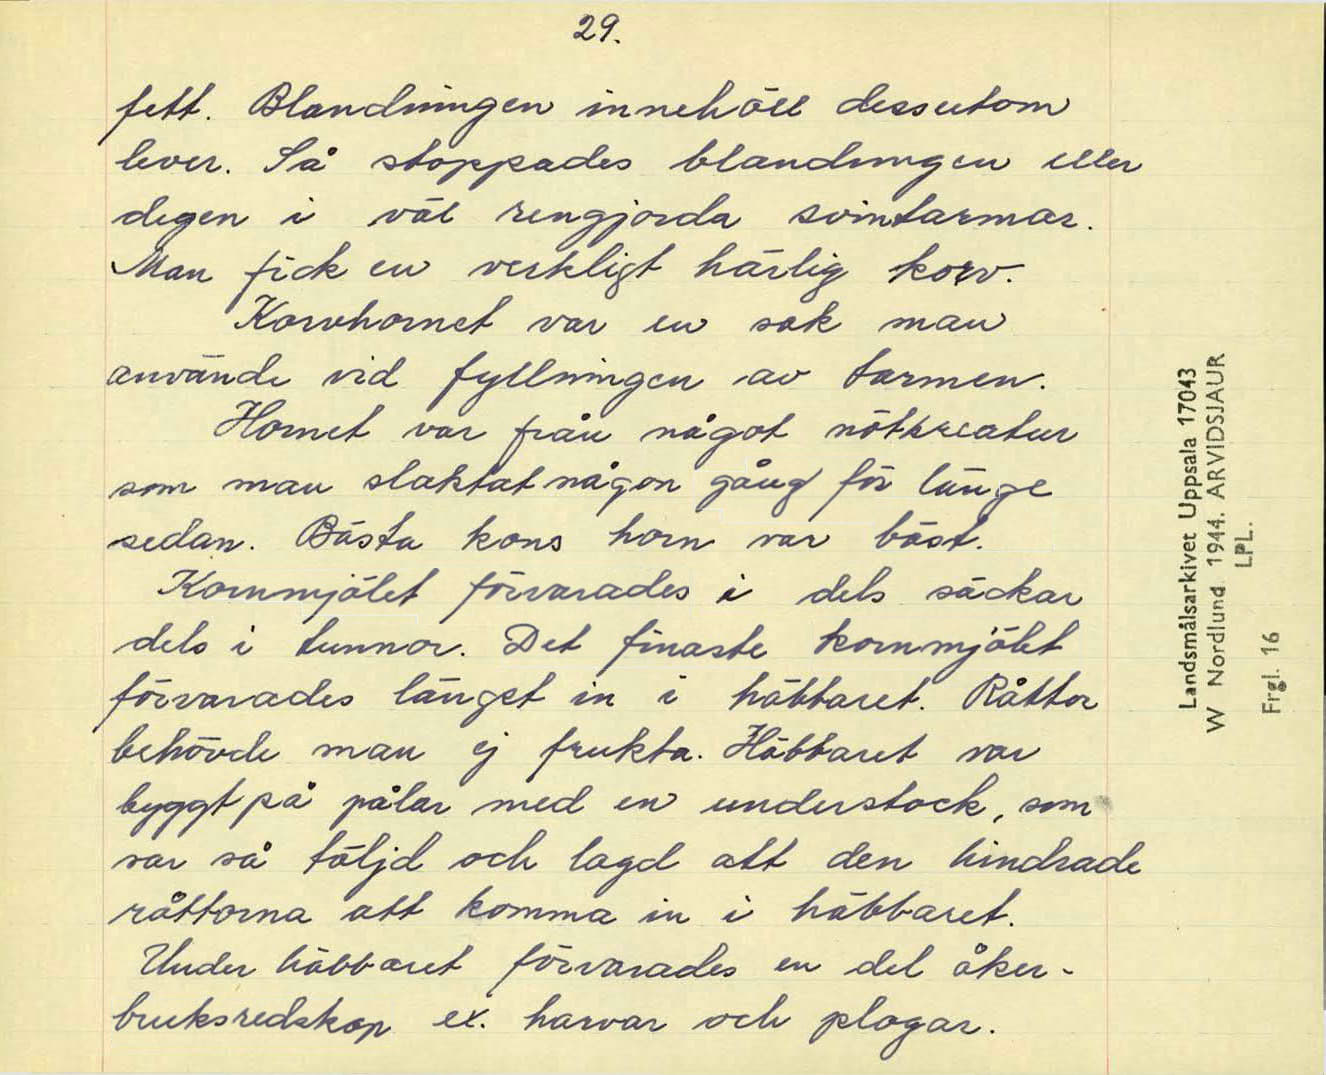 29.
fett. Blandningen innehöll dessutom
lever. Så stoppades blandningen eller
degen i väl rengjorda svintarmar.
Man fick en verkligt härlig korv.
Korvhornet var en sak man
använde vid fyllningen av tarmen.
Hornet var från något nötkreatur
som man slaktat någon gång för länge
sedan. Bästa kons horn var bäst.
Kornmjölet förvarades i dels säckar
dels i tunnor. Det finaste kornmjölet
förvarades längst in i häbbaret. Råttor
behövde man ej frukta. Häbbaret var
byggt på pålar med en understock, som
var så täljd och lagd att den hindrade
råttorna att komma in i häbbaret.
Under häbbaret förvarades en del åker-
bruksredskap ex. harvar och plogar.
Landsmålsarkivet Uppsala 17043
W Nordlund 1944. ARVIDSJAUR
LPL.
Frgl. 16